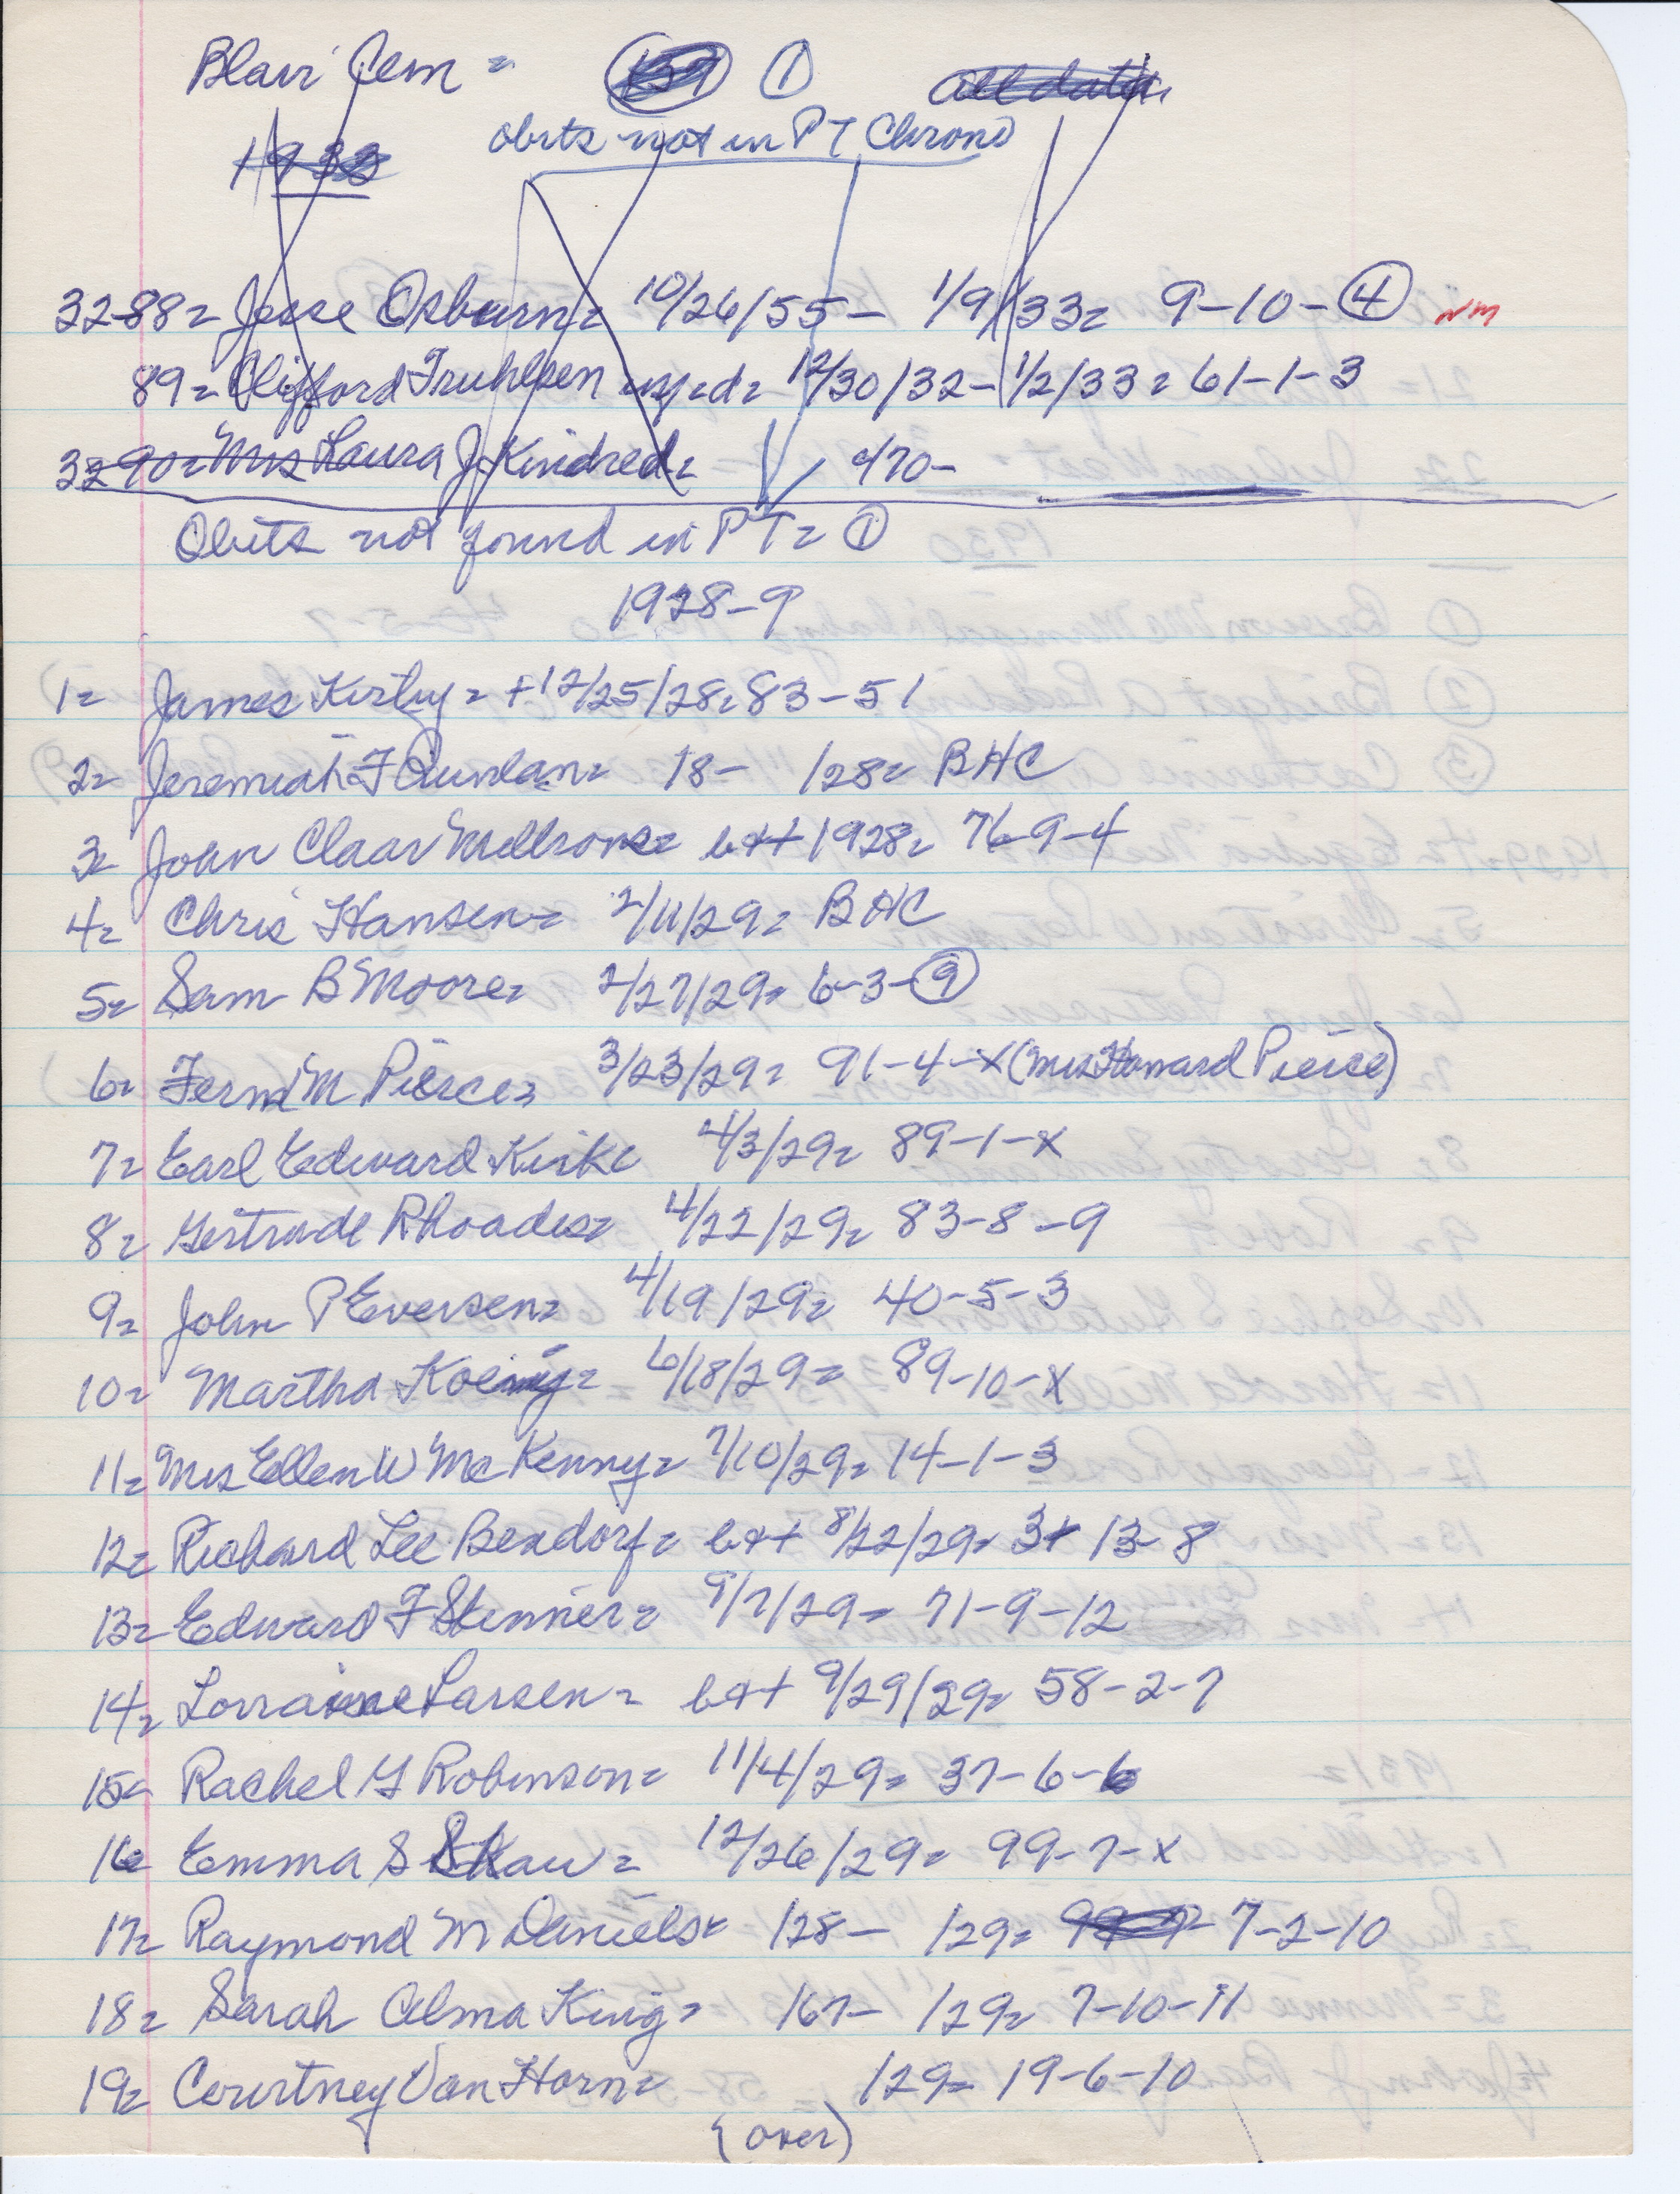 Blair Cem = ①
obits not in PT Chrono
1933
3288= Jesse Osburn= 10/26/55 – 1/9/33= 9-10-④ NM
89= Clifford Truhlsen inf=d= 12/30/32 – 1/2/33= 61-1-3
3290= Mrs Laura J Kindred= /70-
Obits not found in PT= ①
1928-9
1= James Kirby= +12/25/28= 83-51
2= Jeremiah F Quinlan= 18- /28= BHC
3= John Claar Mellrons= b++ 1928= 76-9-4
4= Chris Hansen= 2/11/29= BHC
5= Sam B Moore= 2/27/29= 6-3-⑨
6= Fern M Pierce= 3/23/29= 91-4-X (Mrs Howard Pierce)
7= Earl Edward Kirk= 4/3/29= 89-1-X
8= Gertrude Rhoades= 4/22/29= 83-8-9
9= John P Eversen= 4/19/29= 40-5-3
10= Martha Koenig= 6/18/29= 89-10-X
11= Mrs Ellen W McKenny= 7/10/29= 14-1-3
12= Richard Lee Bendorf= b++ 8/22/29= 13-8
13= Edward F Stenner= 9/7/29= 71-9-12
14= Lorraine Larsen= b++ 9/29/29= 58-2-7
15= Rachel G Robinson= 11/4/29= 37-6-6
16= Emma S Shaw= 12/26/29= 99-7-X
17= Raymond M Daniels= /28- /29= 7-2-10
18= Sarah Alma King= /67- /29= 7-10-11
19= Courtney Van Horn= /29= 19-6-10
(over)